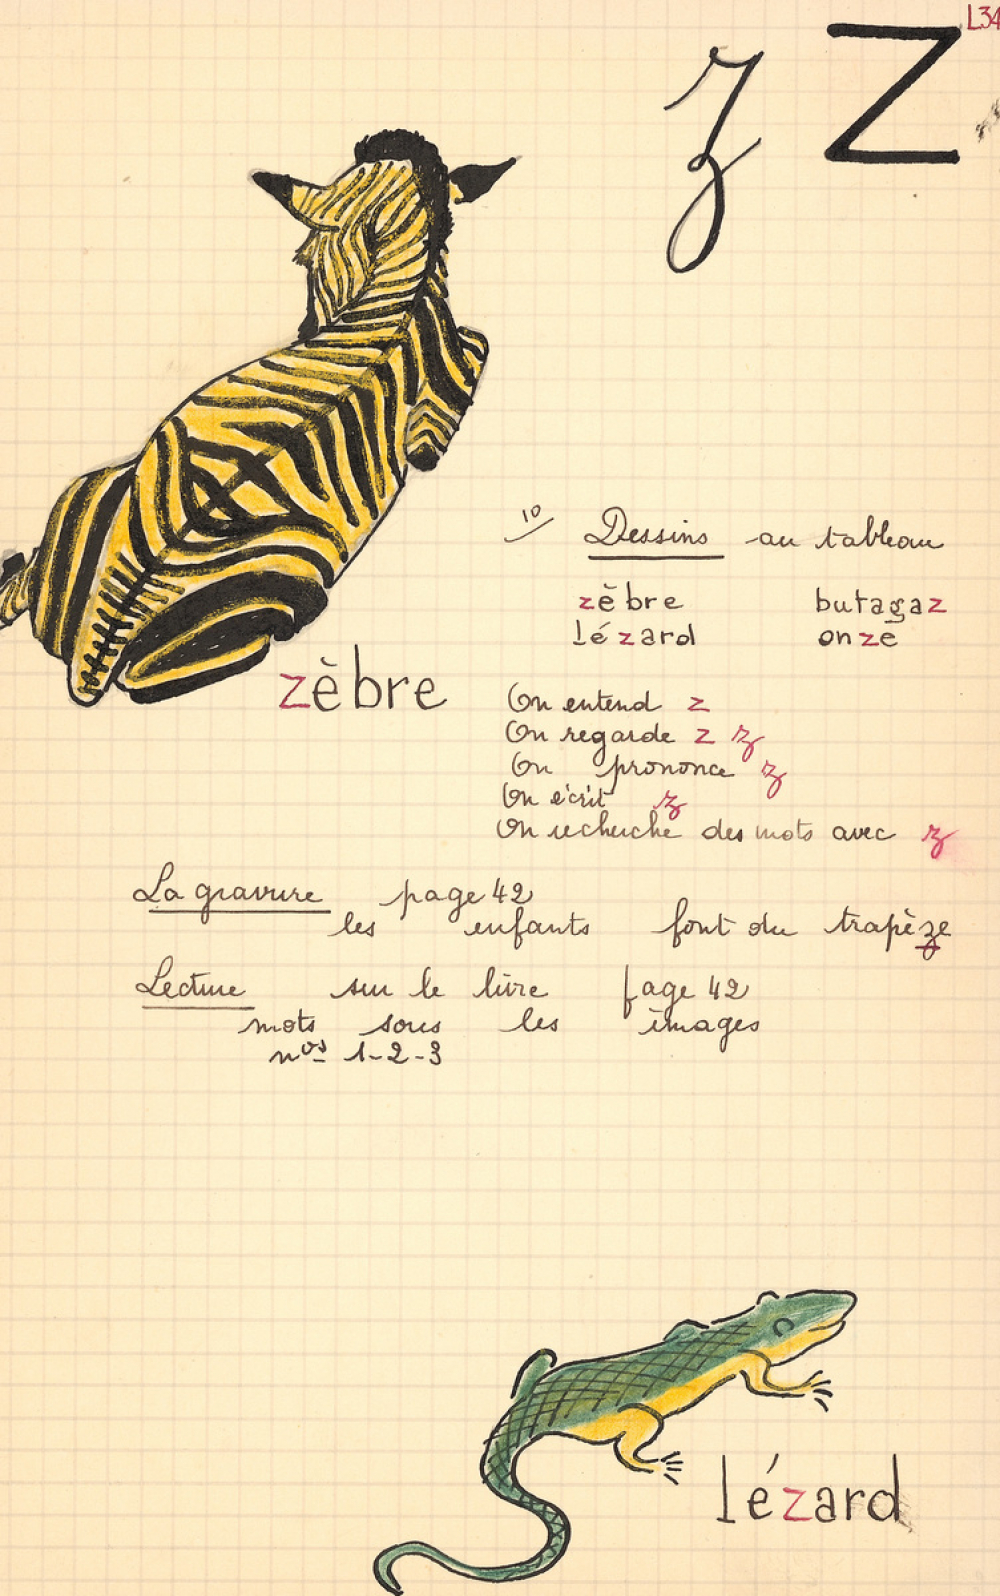 L34
z Z
1º/ Dessins au tableau
zèbre butagaz
lézard onze
zèbre
On entend z
On regarde z z
On prononce z
On écrit z
On recherche des mots avec z
La gravure page 42
les enfants font du trapèze
Lecture sur le livre page 42
mots sous les images
nos 1-2-3
lézard